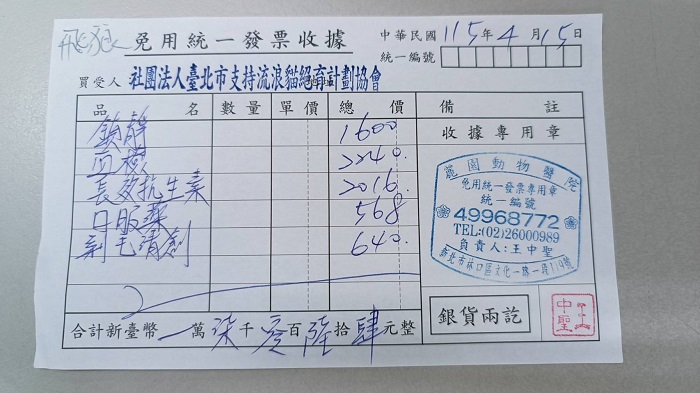 飛狼 免用統一發票收據 中華民國 115 年 4 月 15 日
統一編號
買受人 社團法人臺北市支持流浪貓絕育計劃協會
品名 數量 單價 總價 備註
鎮靜 1600
血檢 2240.
長效抗生素 2016.
口服藥 568
剃毛清創 640.
合計新臺幣 一萬柒千零百陸拾肆元整
收據專用章
麗園動物醫院
免用統一發票專用章
統一編號
49968772
TEL:(02)26000989
負責人:王中聖
新北市林口區文化一路一段119號
銀貨兩訖
王中聖